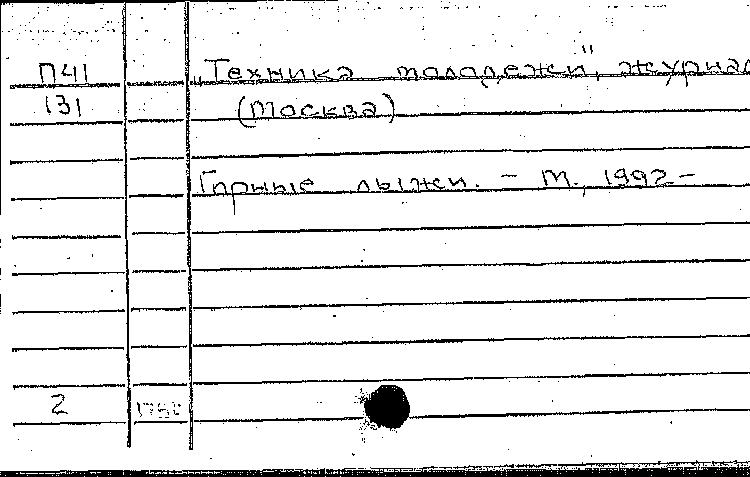 П41
131
„Техника молодежи", журнал
(Москва)
Горные лыжи. - М., 1992-
2